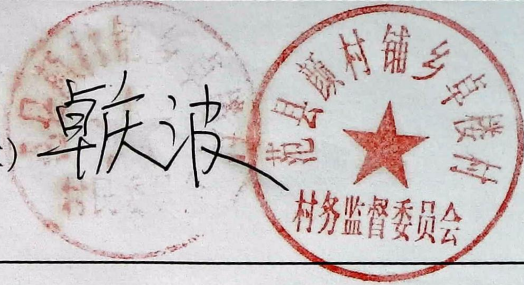 卓庆波
范县颜村铺乡卓陵村
村务监督委员会